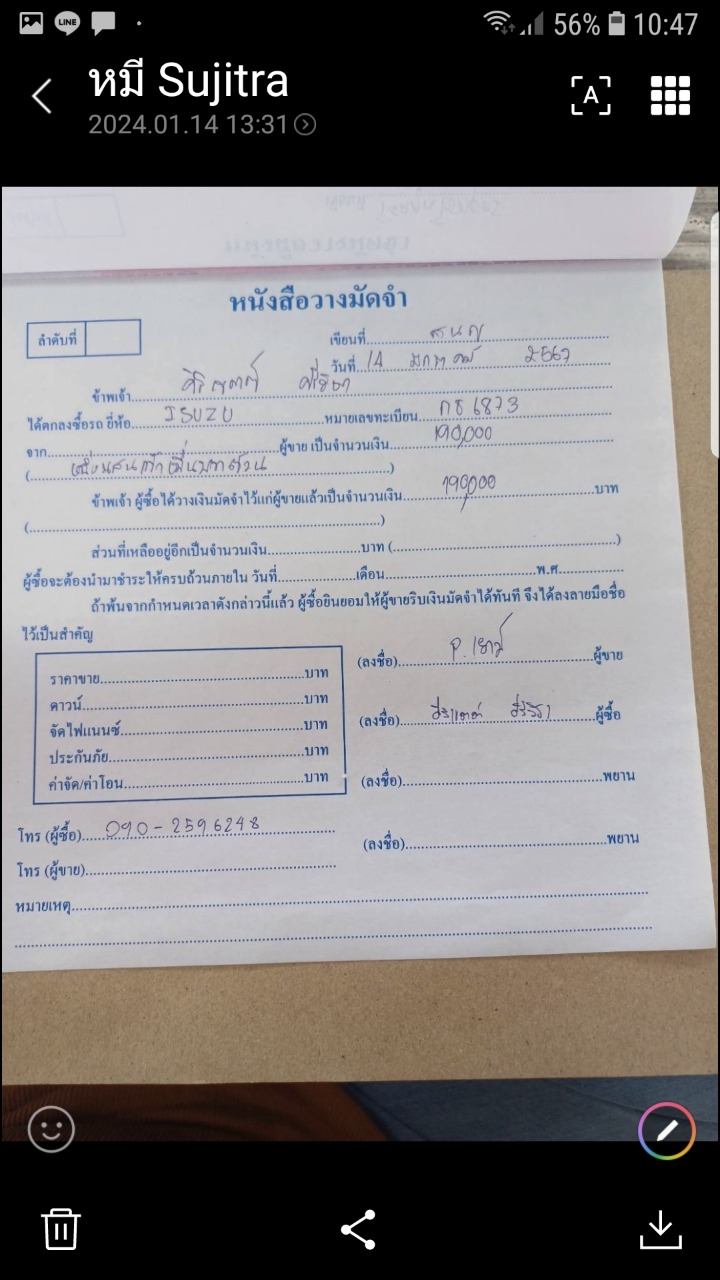 LINE
56% 10:47
หมี Sujitra
2024.01.14 13:31
A
หนังสือวางมัดจำ
ลำดับที่
เขียนที่
วันที่ 14 มกราคม 2567
ข้าพเจ้า
ได้ตกลงซื้อรถ ยี่ห้อ ISUZU หมายเลขทะเบียน 6873
จาก ผู้ขาย เป็นจำนวนเงิน 190,000
( )
ข้าพเจ้า ผู้ซื้อได้วางเงินมัดจำไว้แก่ผู้ขายแล้วเป็นจำนวนเงิน 190,000 บาท
( )
ส่วนที่เหลืออยู่อีกเป็นจำนวนเงิน บาท ( )
ผู้ซื้อจะต้องนำมาชำระให้ครบถ้วนภายใน วันที่ เดือน พ.ศ.
ถ้าพ้นจากกำหนดเวลาดังกล่าวนี้แล้ว ผู้ซื้อยินยอมให้ผู้ขายริบเงินมัดจำได้ทันที จึงได้ลงลายมือชื่อ
ไว้เป็นสำคัญ
ราคาขาย บาท
ดาวน์ บาท
จัดไฟแนนซ์ บาท
ประกันภัย บาท
ค่าจัด/ค่าโอน บาท
(ลงชื่อ) ผู้ขาย
(ลงชื่อ) ผู้ซื้อ
(ลงชื่อ) พยาน
(ลงชื่อ) พยาน
โทร (ผู้ซื้อ) 090-2596248
โทร (ผู้ขาย)
หมายเหตุ